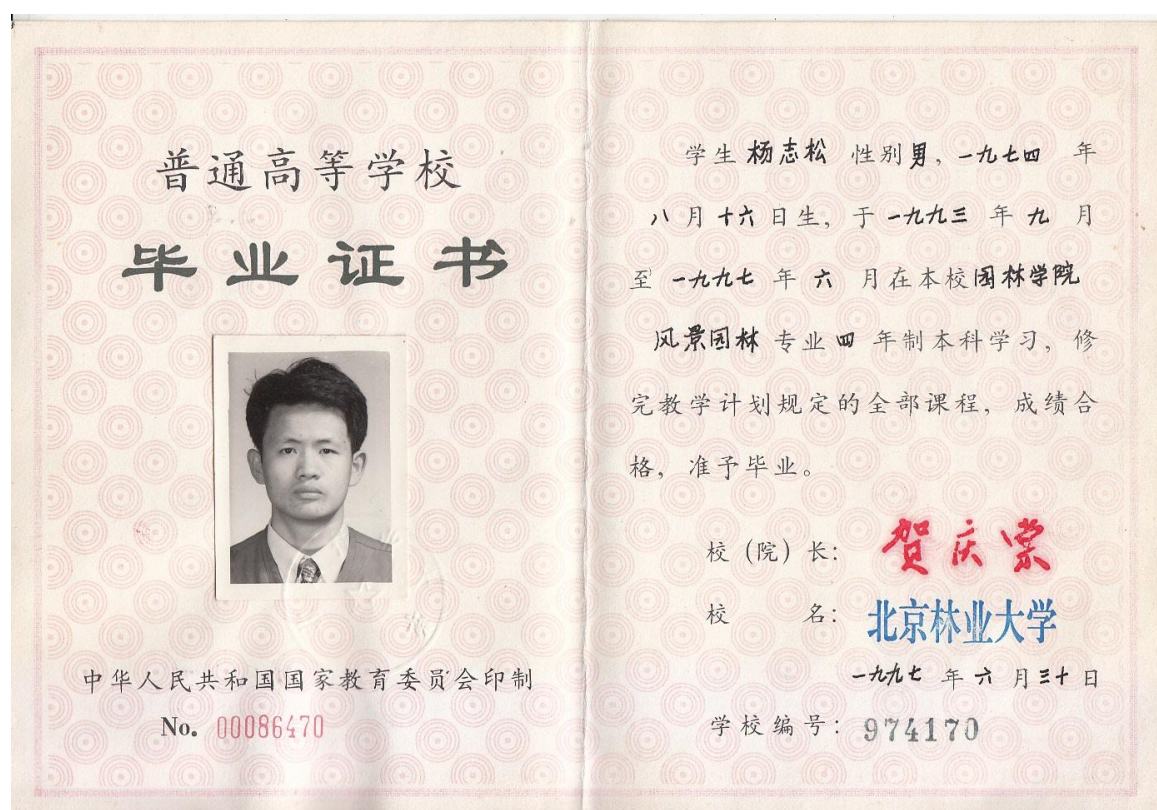 普通高等学校
毕业证书
中华人民共和国国家教育委员会印制
No. 00086470
学生杨志松 性别男，一九七四 年
八月十六日生，于一九九三年九月
至一九九七年六月在本校园林学院
风景园林专业四年制本科学习，修
完教学计划规定的全部课程，成绩合
格，准予毕业。
校（院）长：贺庆棠
校 名：北京林业大学
一九九七年六月三十日
学校编号：974170